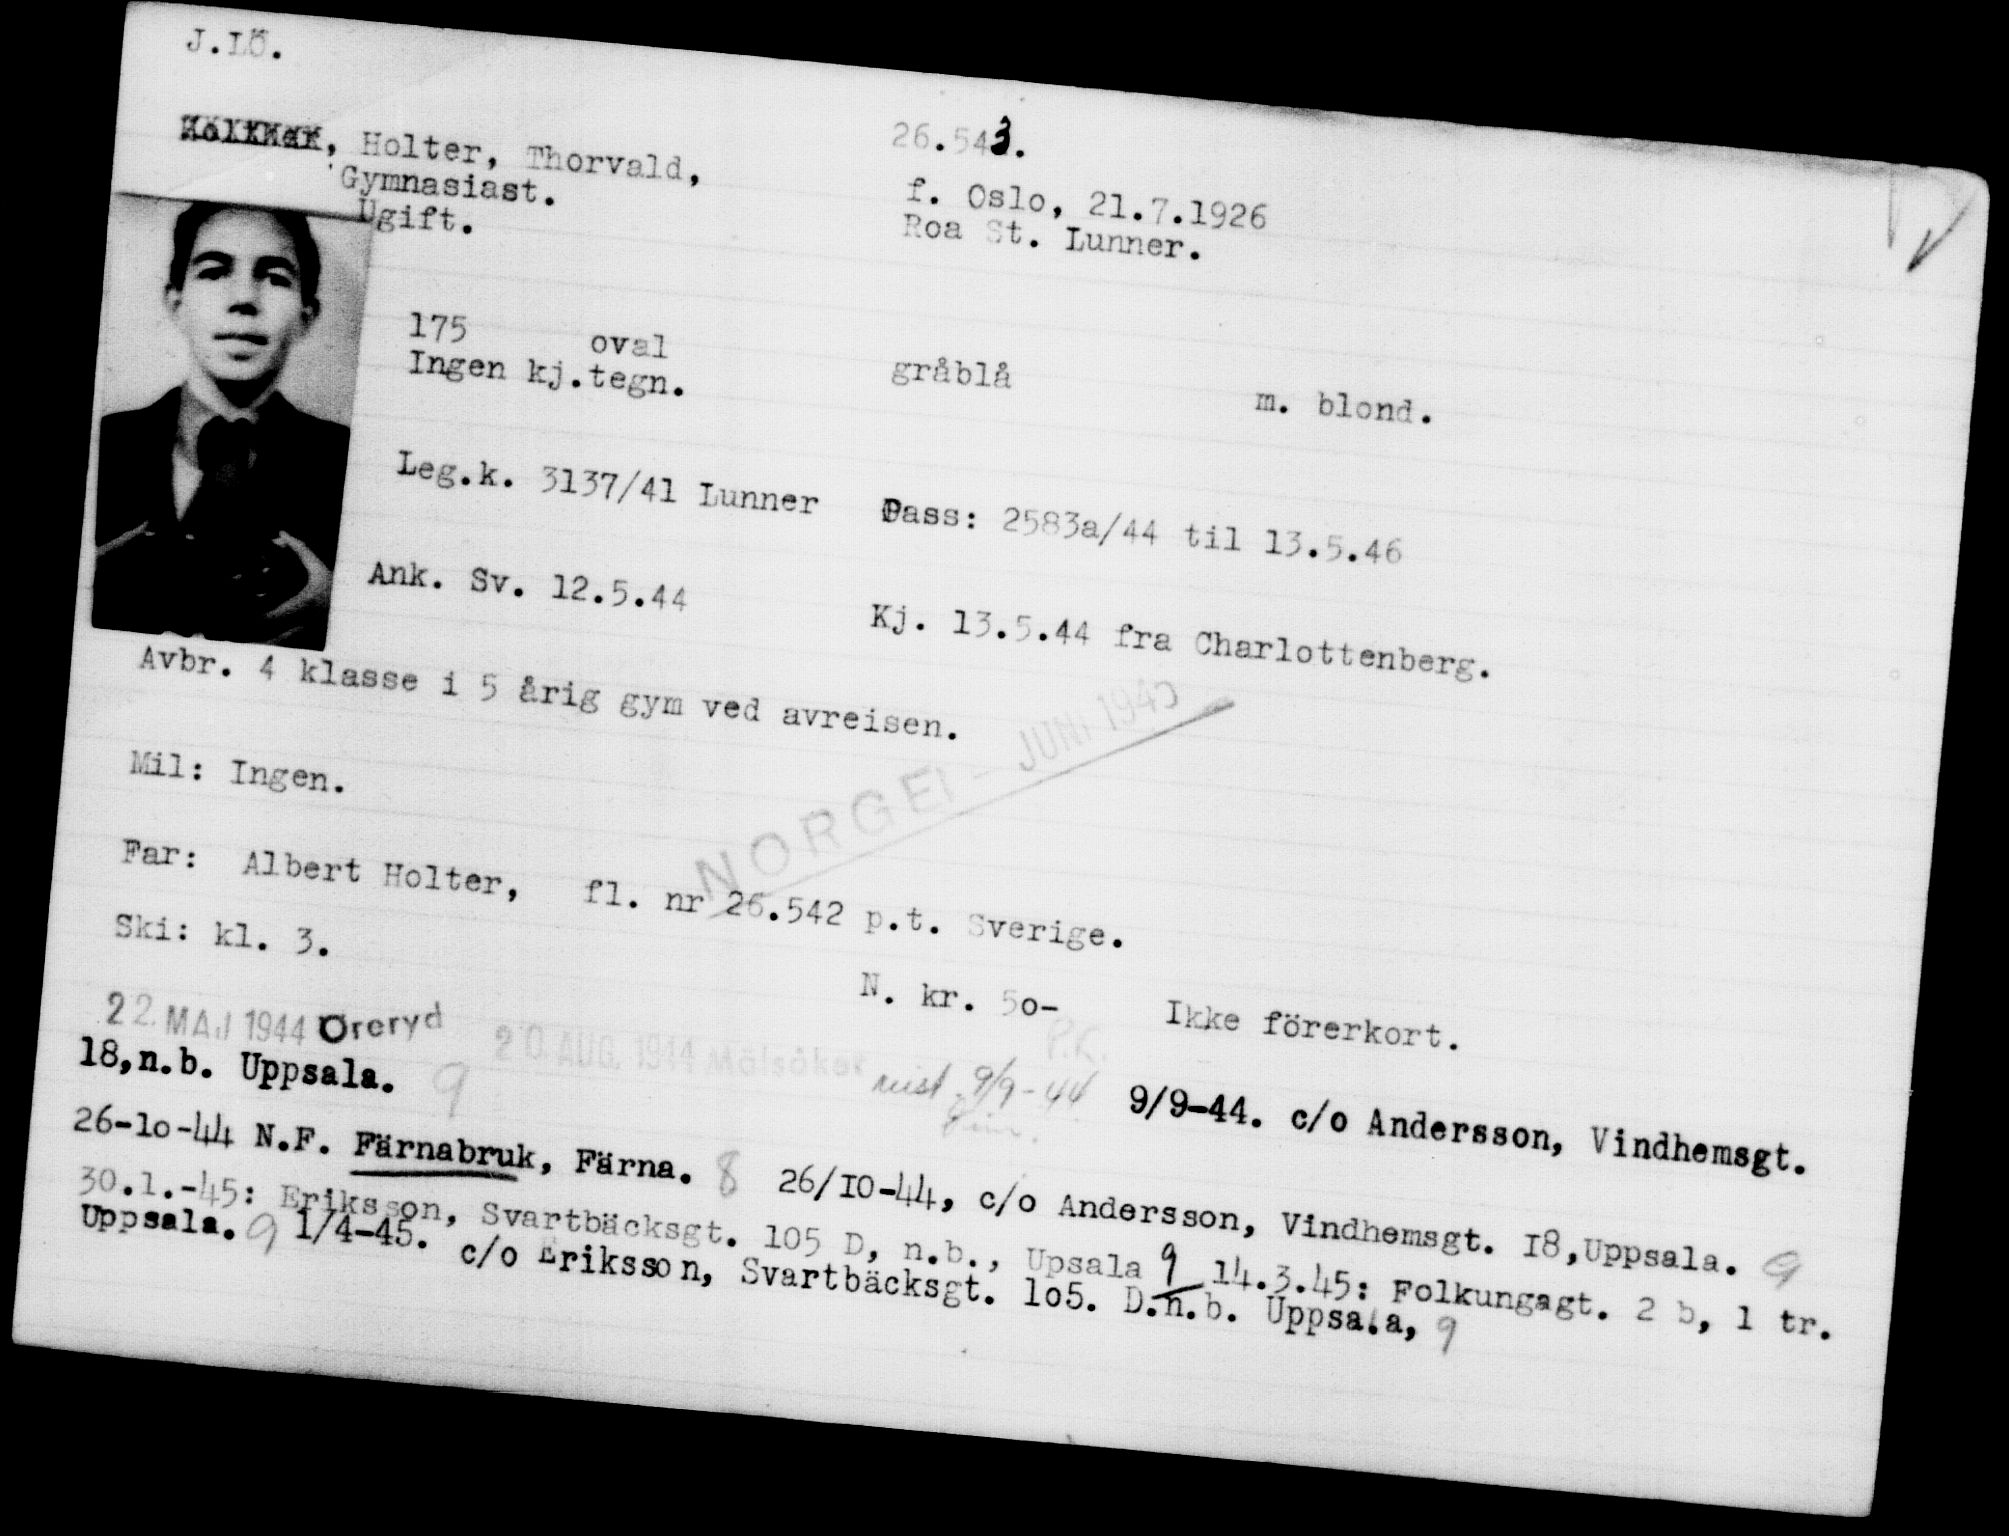 J.LÖ.
Holter, Thorvald,
26.543.
Gymnasiast.
f. Oslo, 21.7.1926
Ugift.
Roa St. Lunner.
175 oval gråblå m. blond.
Ingen kj.tegn.
Leg.k. 3137/41 Lunner Pass: 2583a/44 til 13.5.46
Ank. Sv. 12.5.44 Kj. 13.5.44 fra Charlottenberg.
Avbr. 4 klasse i 5 årig gym ved avreisen.
NORGE - JUNI 1945
Mil: Ingen.
Far: Albert Holter, fl. nr 26.542 p.t. Sverige.
Ski: kl. 3. N. kr. 5o- Ikke förerkort.
P.K.
22. MAJ 1944 Öreryd 20 AUG. 1944 Mälsåker 9/9-44 9/9-44. c/o Andersson, Vindhemsgt.
18,n.b. Uppsala. 9
26-1o-44 N.F. Färnabruk, Färna. 8 26/10-44, c/o Andersson, Vindhemsgt. 18,Uppsala. 9
30.1.-45: Eriksson, Svartbäcksgt. 105 D, n.b., Upsala 9 14.3.45: Folkungagt. 2 b, 1 tr.
Uppsala. 9 1/4-45. c/o Eriksson, Svartbäcksgt. 1o5. D.n.b. Uppsala, 9